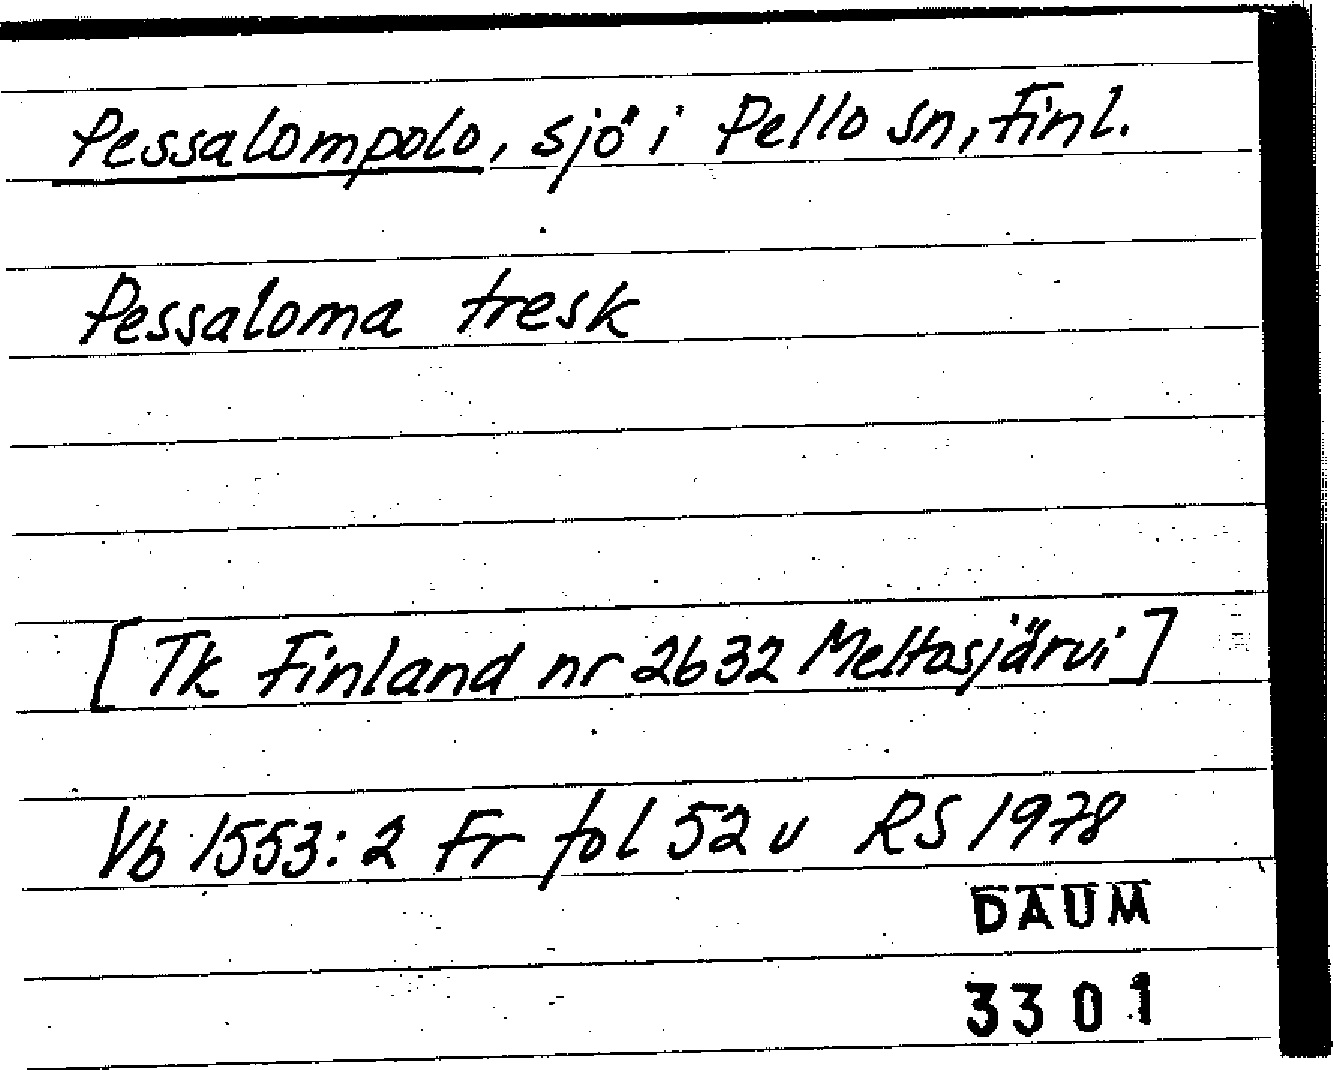 Pessalompolo, sjö i Pello sn, Finl.
Pessaloma tresk
[Tk Finland nr 2632 Meltosjärvi]
Vb 1553:2 Fr fol 52 v RS 1978
DAUM
3301